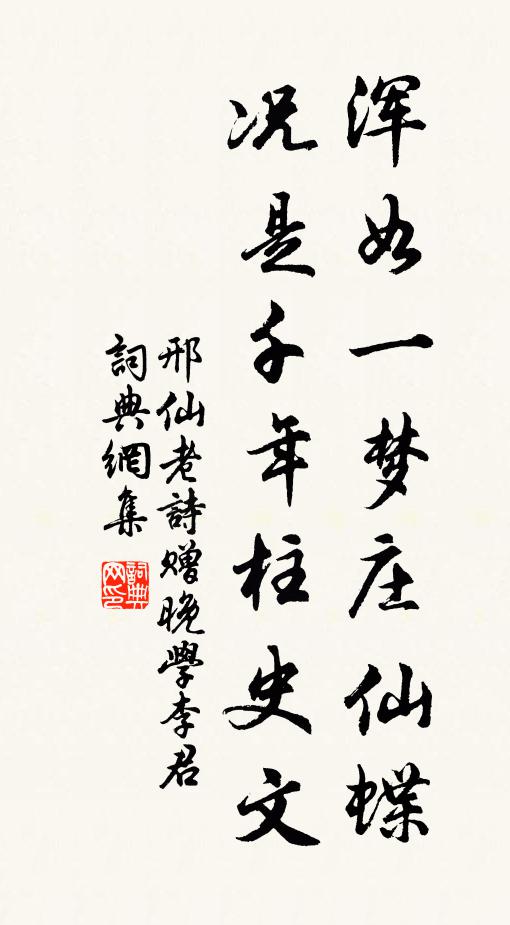 浑如一梦庄仙蝶
况是千年柱史文
邢仙老詩赠晚學李君
詞典網集
詞典
网印